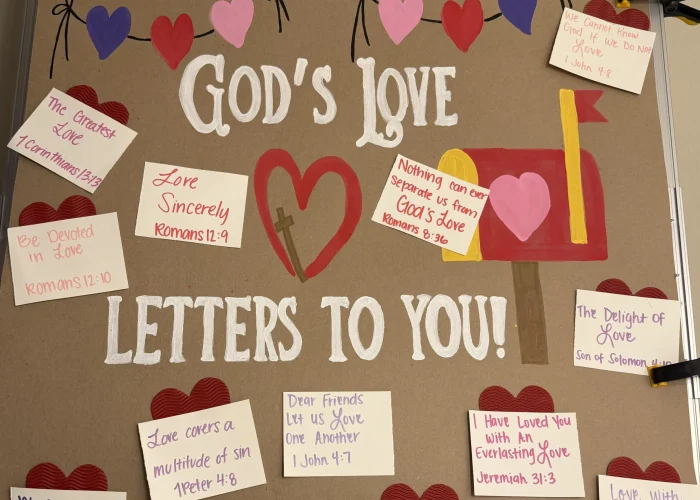 We Cannot Know
God If We Do Not
Love
1 John 4:8
GOD'S LOVE
The Greatest
Love
1 Corinthians 13:13
Love
Sincerely
Romans 12:9
Nothing can ever
separate us from
God's Love
Romans 8:36
Be Devoted
in Love
Romans 12:10
LETTERS TO YOU!
The Delight of
Love
Son of Solomon 4:10
Love covers a
multitude of sin
1 Peter 4:8
Dear Friends
Let us Love
One Another
1 John 4:7
I Have Loved You
With An
Everlasting Love
Jeremiah 31:3
Love, With